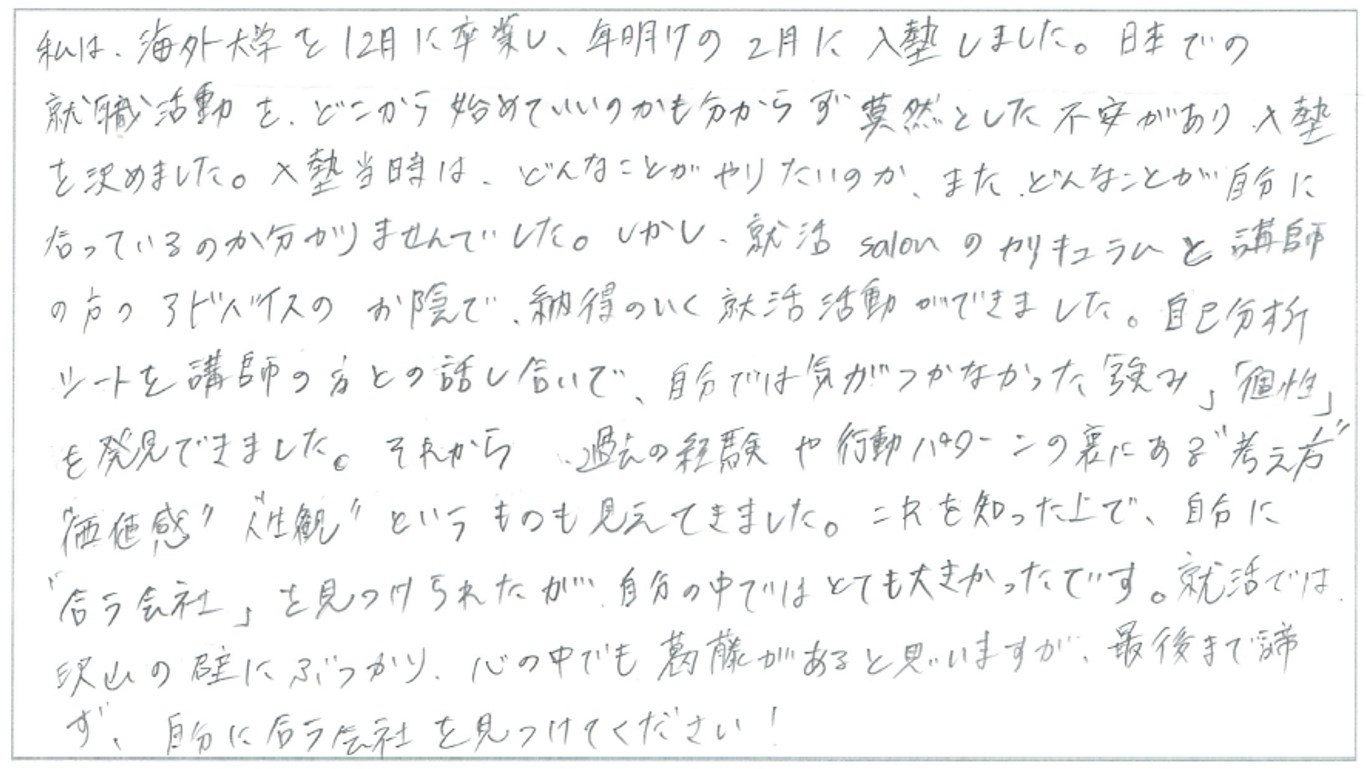 私は、海外大学を12月に卒業し、年明けの2月に入塾しました。日本での
就職活動を、どこから始めていいのかも分からず莫然とした不安があり入塾
を決めました。入塾当時は、どんなことがやりたいのか、また、どんなことが自分に
合っているのか分かりませんでした。しかし、就活salonのカリキュラムと講師
の方のアドバイスのお陰で、納得のいく就活活動ができました。自己分析
シートを講師の方との話し合いで、自分では気がつかなかった「強み」「個性」
を発見できました。それから、過去の経験や行動パターンの裏にある"考え方"
"価値感" "人生観" というものも見えてきました。これを知った上で、自分に
「合う会社」を見つけられたが、自分の中ではとても大きかったです。就活では、
沢山の壁にぶつかり、心の中でも葛藤があると思いますが、最後まで諦
ず、自分に合う会社を見つけてください!